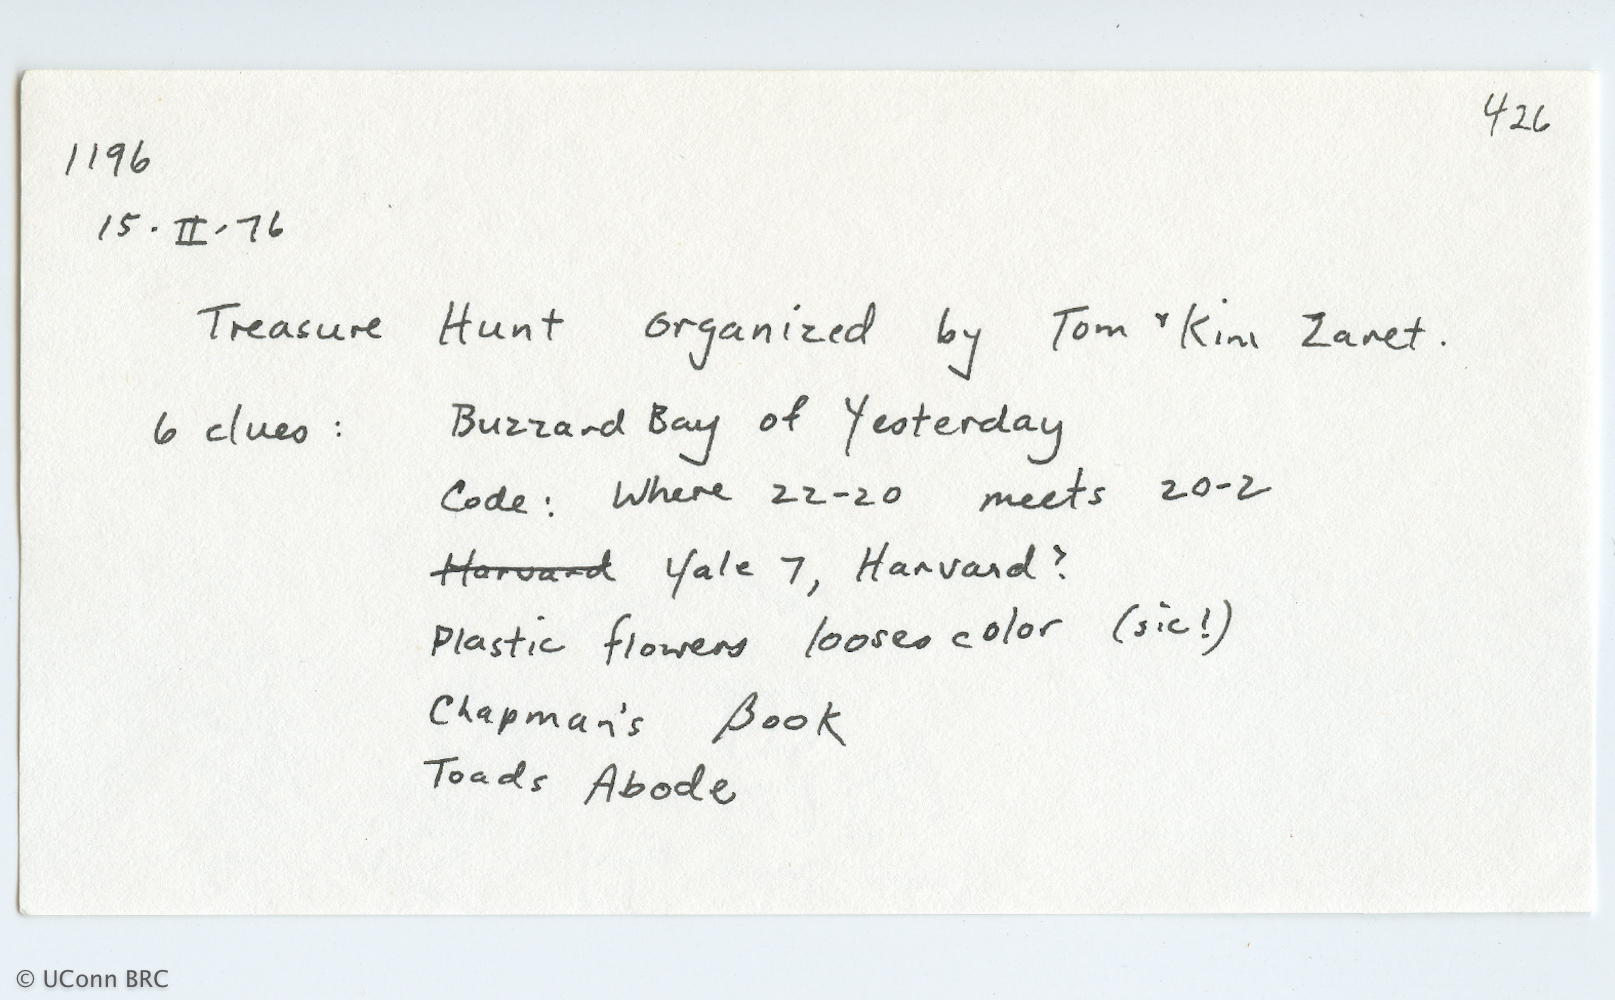 426
1196
15·II·76
Treasure Hunt organized by Tom & Kim Zaret.
6 clues: Buzzard Bay of Yesterday
Code: Where 22-20 meets 20-2
~~Harvard~~ Yale 7, Harvard?
Plastic flowers looses color (sic!)
Chapman's Book
Toads Abode
© UConn BRC